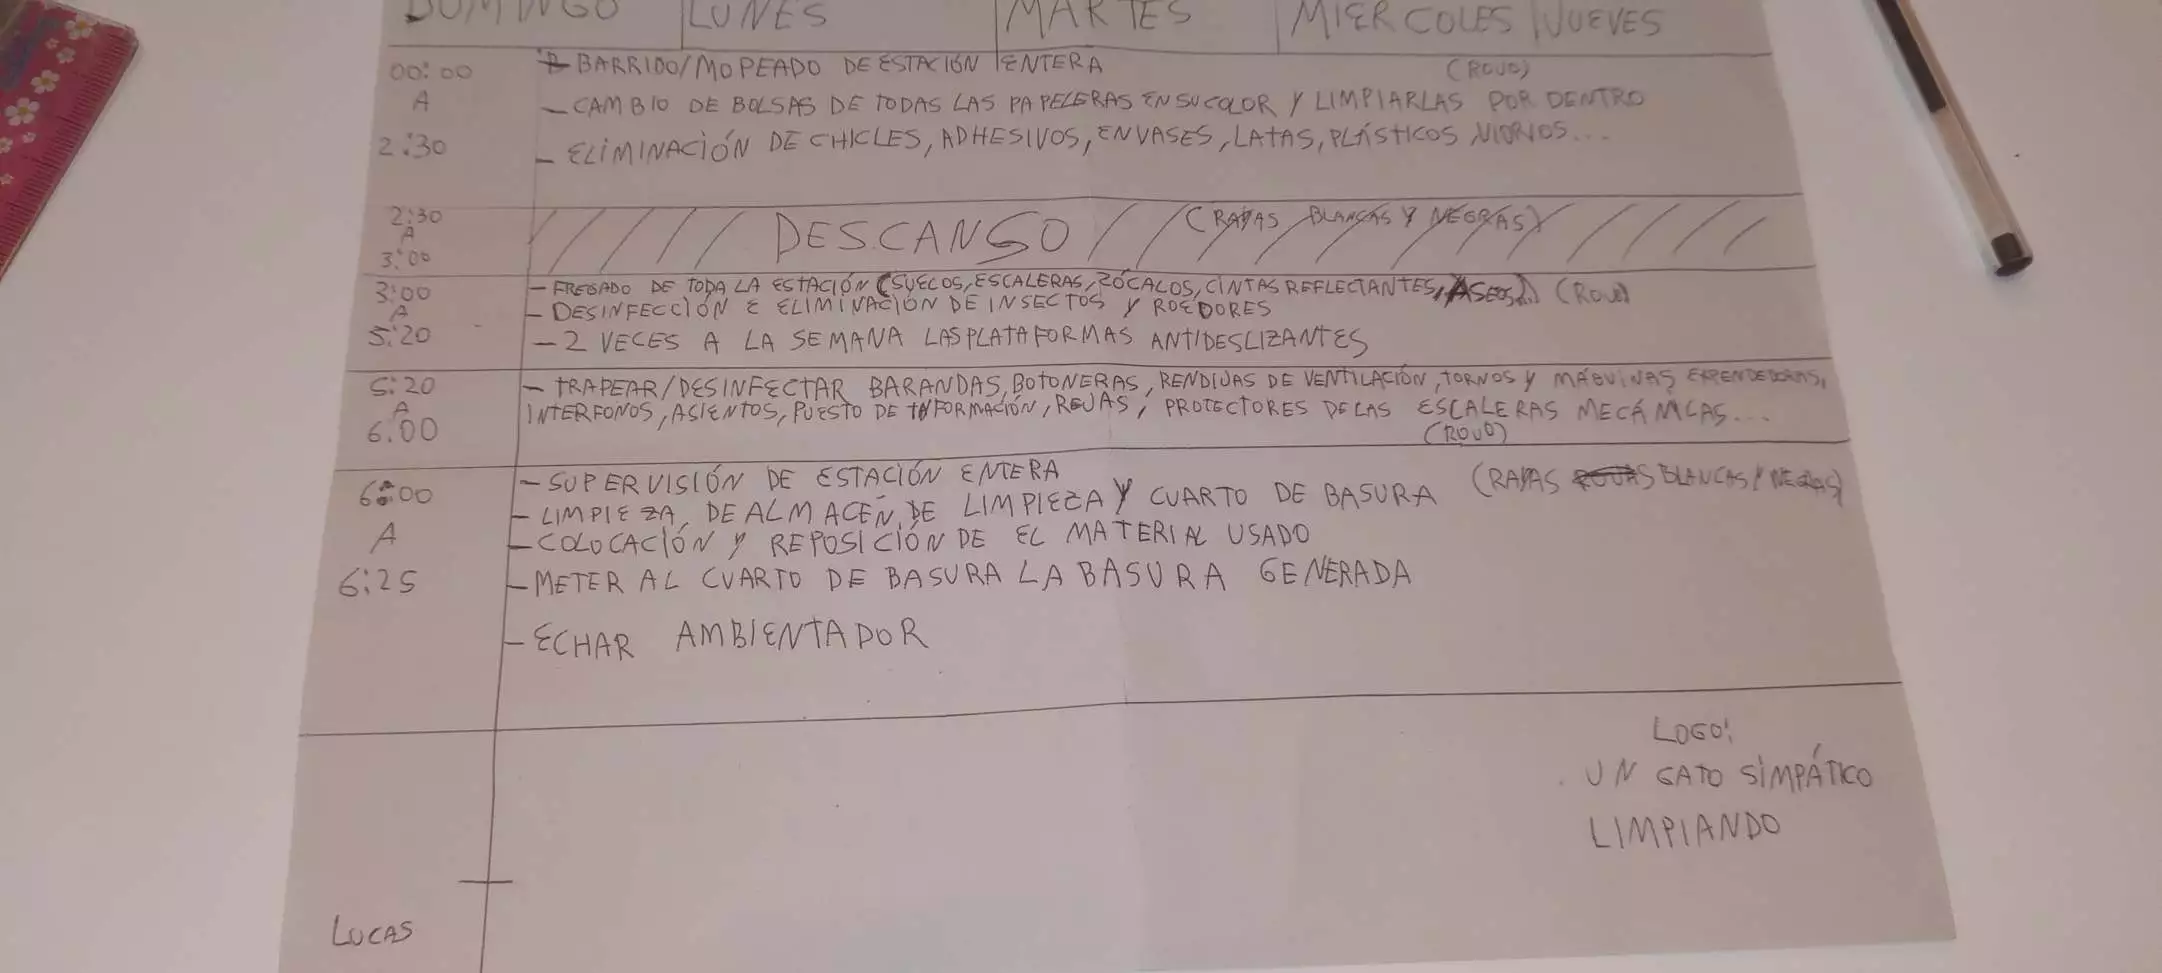 DOMINGO LUNES MARTES MIERCOLES JUEVES
00:00 A 2:30
BARRIDO/MOPEADO DE ESTACIÓN ENTERA (ROJO)
- CAMBIO DE BOLSAS DE TODAS LAS PAPELERAS EN SU COLOR Y LIMPIARLAS POR DENTRO
- ELIMINACIÓN DE CHICLES, ADHESIVOS, ENVASES, LATAS, PLÁSTICOS, VIDRIOS...
2:30 A 3:00
DESCANSO (RAYAS BLANCAS Y NEGRAS)
3:00 A 5:20
- FREGADO DE TODA LA ESTACIÓN (SUELOS, ESCALERAS, ZÓCALOS, CINTAS REFLECTANTES, ASEOS..) (ROJO)
- DESINFECCIÓN E ELIMINACIÓN DE INSECTOS Y ROEDORES
- 2 VECES A LA SEMANA LAS PLATAFORMAS ANTIDESLIZANTES
5:20 A 6:00
- TRAPEAR/DESINFECTAR BARANDAS, BOTONERAS, RENDIJAS DE VENTILACIÓN, TORNOS Y MÁQUINAS EXPENDEDORAS,
INTERFONOS, ASIENTOS, PUESTO DE INFORMACIÓN, REJAS, PROTECTORES DE LAS ESCALERAS MECÁNICAS...
(ROJO)
6:00 A 6:25
- SUPERVISIÓN DE ESTACIÓN ENTERA (RAYAS BLANCAS Y NEGRAS)
- LIMPIEZA, DE ALMACEN, DE LIMPIEZA Y CUARTO DE BASURA
- COLOCACIÓN Y REPOSICIÓN DE EL MATERIAL USADO
- METER AL CUARTO DE BASURA LA BASURA GENERADA
- ECHAR AMBIENTADOR
LOGO:
UN GATO SIMPÁTICO
LIMPIANDO
LUCAS